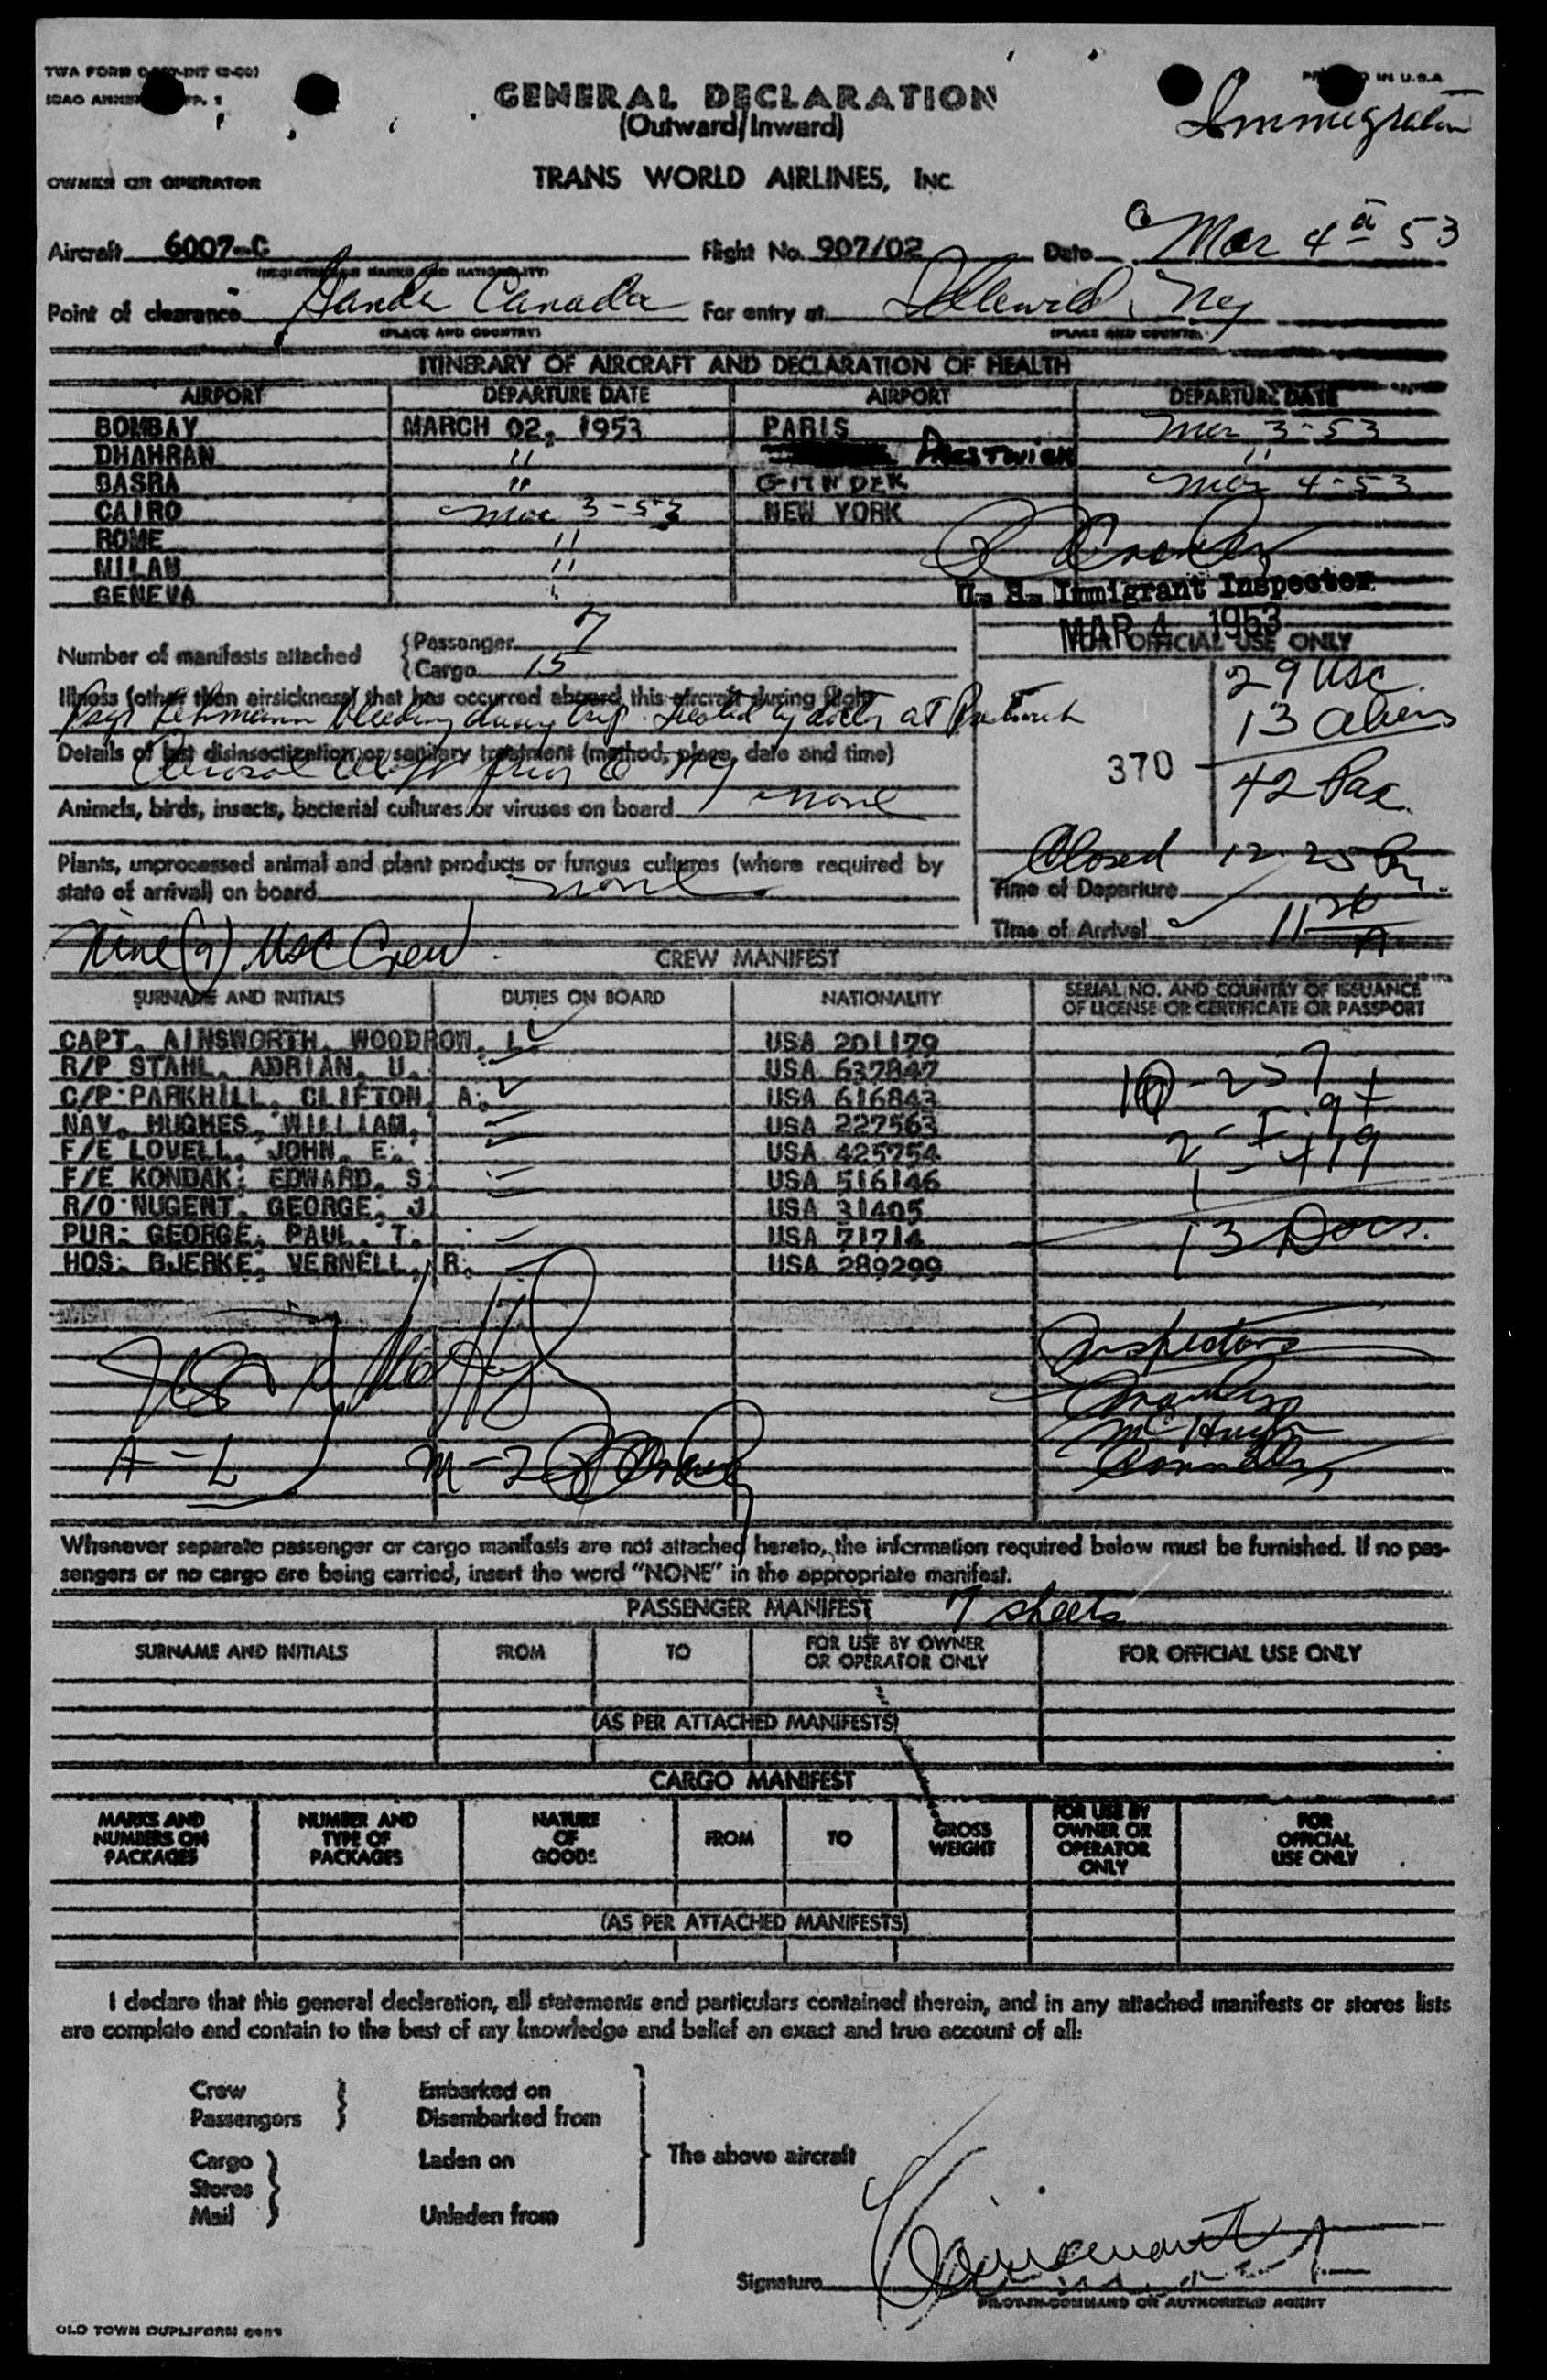 TWA FORM
PRINTED IN U.S.A
ICAO ANNEX
GENERAL DECLARATION
(Outward/Inward)
Immigration
OWNER OR OPERATOR
TRANS WORLD AIRLINES, INC
Aircraft 6007-C Flight No. 907/02 Date Mar 4 53
(REGISTRATION MARKS AND NATIONALITY)
Point of clearance Gander Canada For entry at Idlewild, NY
(PLACE AND COUNTRY) (PLACE AND COUNTRY)
ITINERARY OF AIRCRAFT AND DECLARATION OF HEALTH
AIRPORT DEPARTURE DATE AIRPORT DEPARTURE DATE
BOMBAY MARCH 02, 1953 PARIS Mar 3-53
DHAHRAN " Prestwick "
BASRA " GANDER Mar 4-53
CAIRO Mar 3-53 NEW YORK
ROME "
MILAN "
GENEVA
U. S. Immigrant Inspector
MAR 4 1953
Number of manifests attached { Passenger 7
{ Cargo 15
OFFICIAL USE ONLY
29 USC.
13 aliens
42 Pax.
370
Illness (other than airsickness) that has occurred aboard this aircraft during flight
Psgr Lehmann bleeding during trip. Treated by doctor at Prestwick
Details of last disinsectization or sanitary treatment (method, place, date and time)
Aerosol prior to NY
Animals, birds, insects, bacterial cultures or viruses on board none
Plants, unprocessed animal and plant products or fungus cultures (where required by
state of arrival) on board none
Closed 12.25
Time of Departure
Time of Arrival 11
Nine (9) USC Crew
CREW MANIFEST
SURNAME AND INITIALS DUTIES ON BOARD NATIONALITY SERIAL NO. AND COUNTRY OF ISSUANCE
OF LICENSE OR CERTIFICATE OR PASSPORT
CAPT. AINSWORTH, WOODROW, L. USA 201179
R/P STAHL, ADRIAN, U. USA 637847
C/P PARKHILL, CLIFTON, A. USA 616843
NAV. HUGHES, WILLIAM, USA 227563
F/E LOVELL, JOHN, E. USA 425754
F/E KONDAK, EDWARD, S. USA 516146
R/O NUGENT, GEORGE, J USA 31405
PUR: GEORGE, PAUL, T. USA 71714
HOS: BJERKE, VERNELL, R. USA 289299
13 Docs.
Inspectors
McHugh
A-L M-Z
Whenever separate passenger or cargo manifests are not attached hereto, the information required below must be furnished. If no pas-
sengers or no cargo are being carried, insert the word "NONE" in the appropriate manifest.
PASSENGER MANIFEST 7 sheets
SURNAME AND INITIALS FROM TO FOR USE BY OWNER
OR OPERATOR ONLY FOR OFFICIAL USE ONLY
(AS PER ATTACHED MANIFESTS)
CARGO MANIFEST
MARKS AND
NUMBERS ON
PACKAGES
NUMBER AND
TYPE OF
PACKAGES
NATURE
OF
GOODS
FROM
TO
GROSS
WEIGHT
FOR USE BY
OWNER OR
OPERATOR
ONLY
FOR
OFFICIAL
USE ONLY
(AS PER ATTACHED MANIFESTS)
I declare that this general declaration, all statements and particulars contained therein, and in any attached manifests or stores lists
are complete and contain to the best of my knowledge and belief an exact and true account of all:
Crew Embarked on
Passengers Disembarked from
Cargo Laden on The above aircraft
Stores
Mail Unladen from
Signature
PILOT-IN-COMMAND OR AUTHORIZED AGENT
OLD TOWN DUPLIFORM